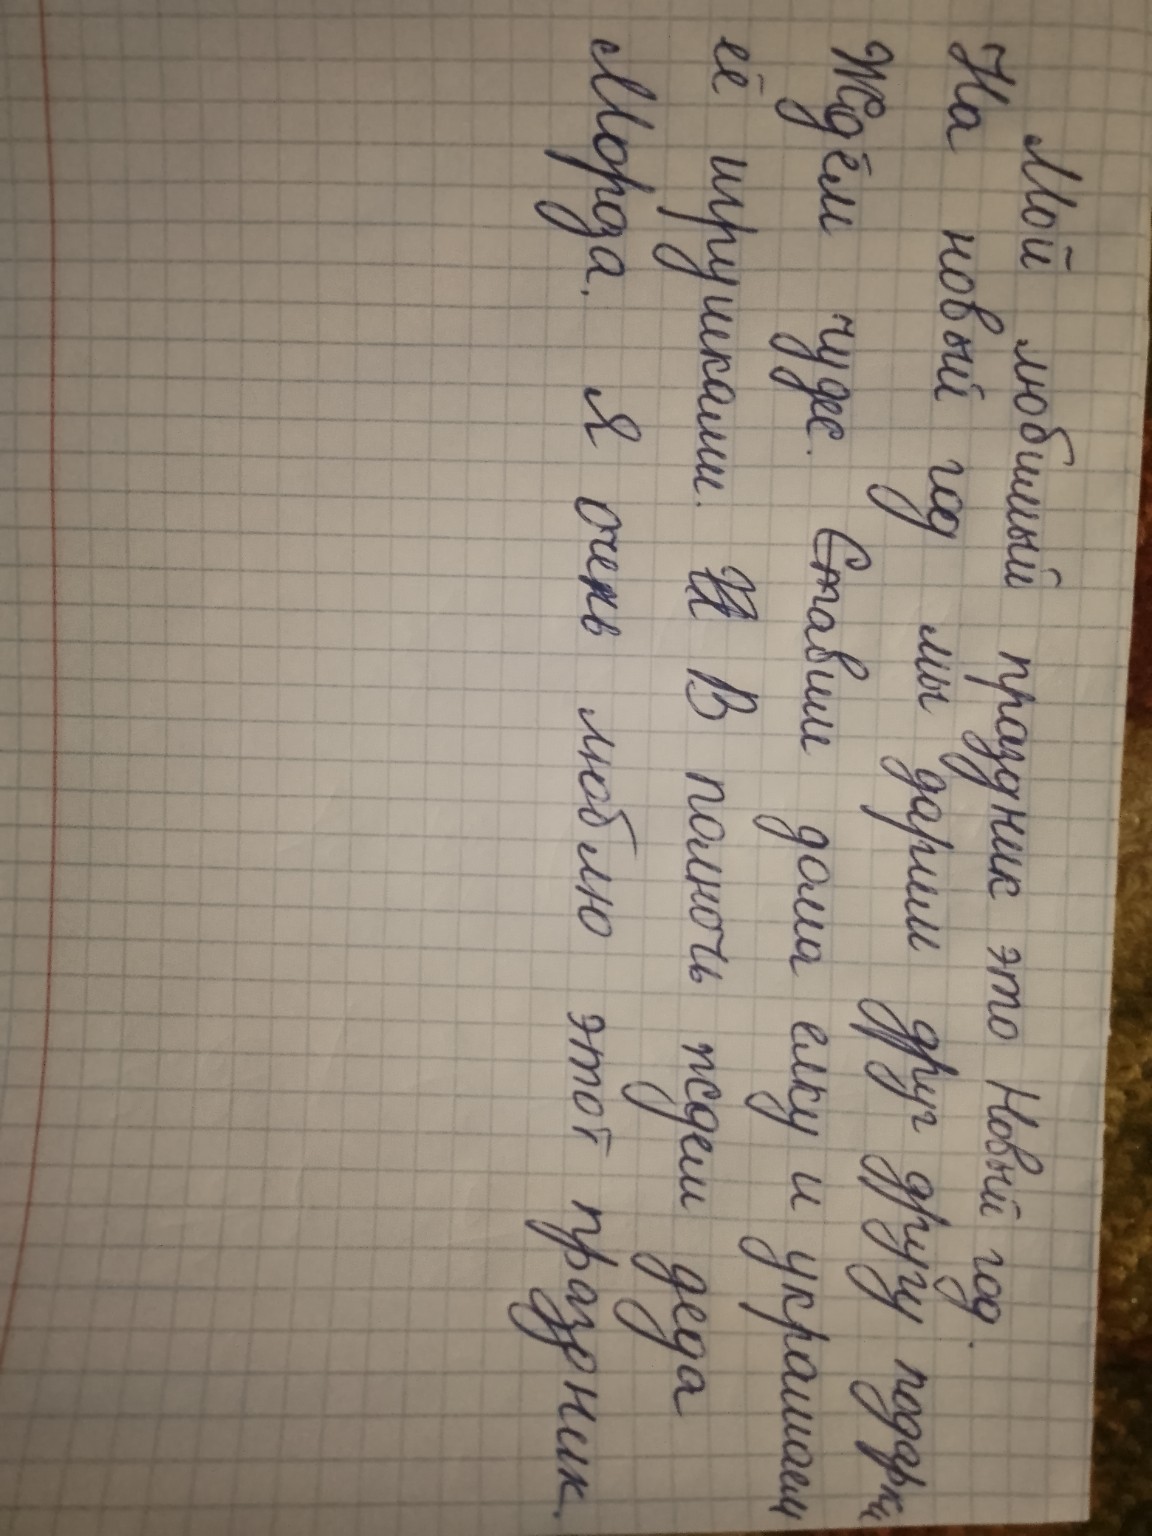 Мой любимый праздник это Новый год.
На новый год мы дарим друг другу подарки
Ждём чудес. Ставим дома елку и украшаем
её игрушками. В полночь ждем деда
Мороза. Я очень люблю этот праздник.